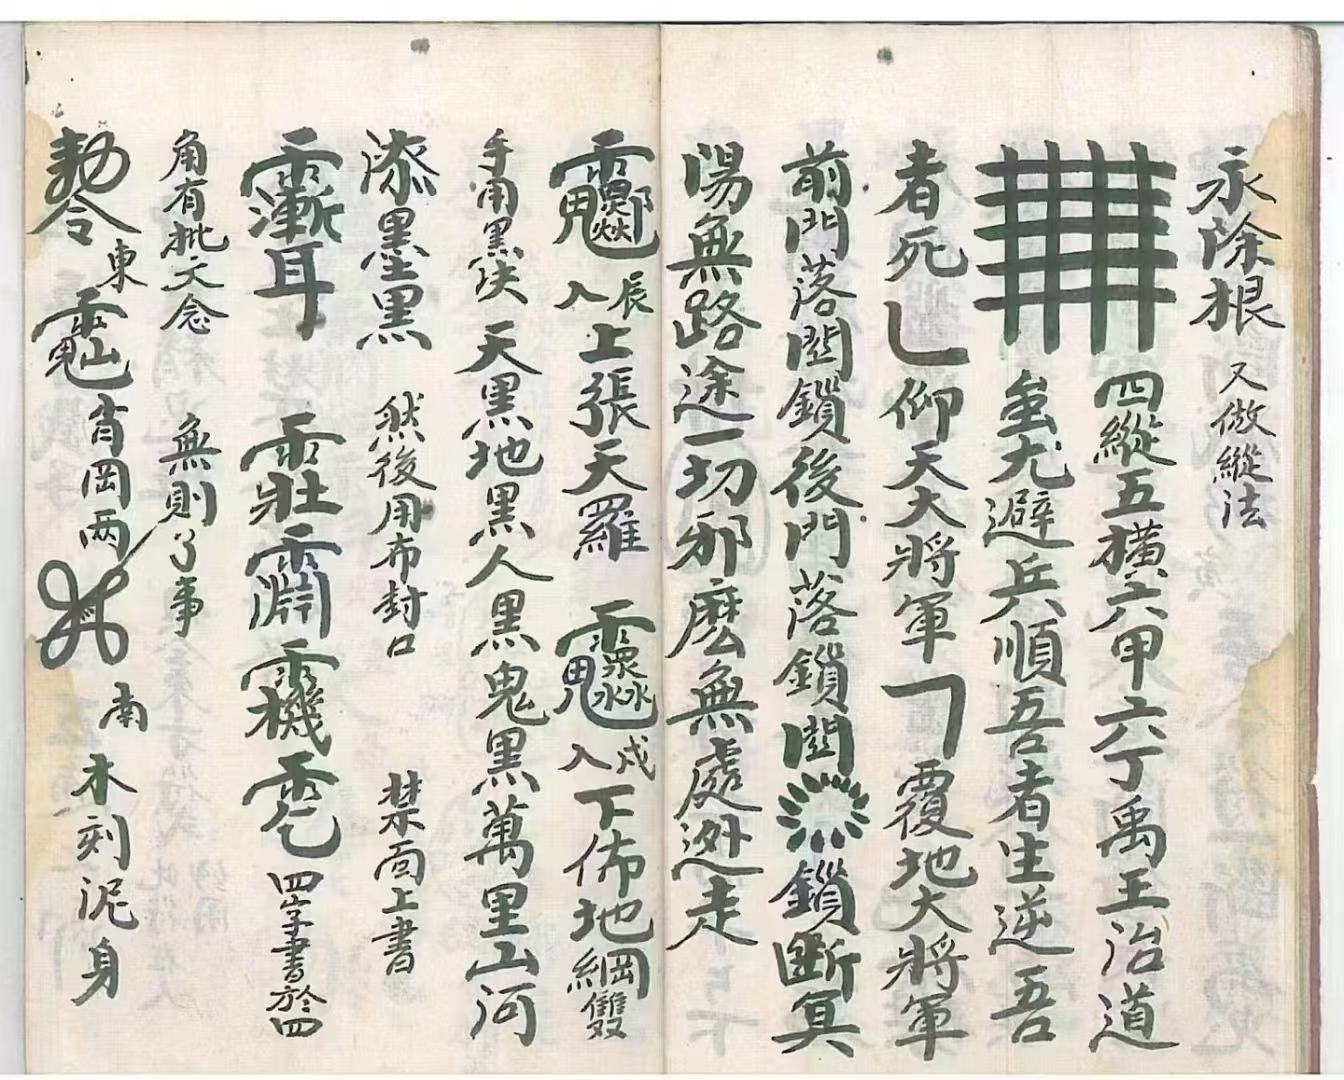 永除根 又倣縱法
四縱五橫六甲六丁禹王治道
蚩尤避兵順吾者生逆吾
者死乚仰天大將軍㇆覆地大將軍
前門落関鎖後門落鎖関鎖斷冥
陽無路途一切邪麼無處迯走
入辰上張天羅 入戍下佈地綱雙
手用黑決天黑地黑人黑鬼黑萬里山河
添墨黑 然後用布封口 禁面上書
四字書於四
角有批文念 無則了事
勅令 東 肖岡两 南 木刻泥身